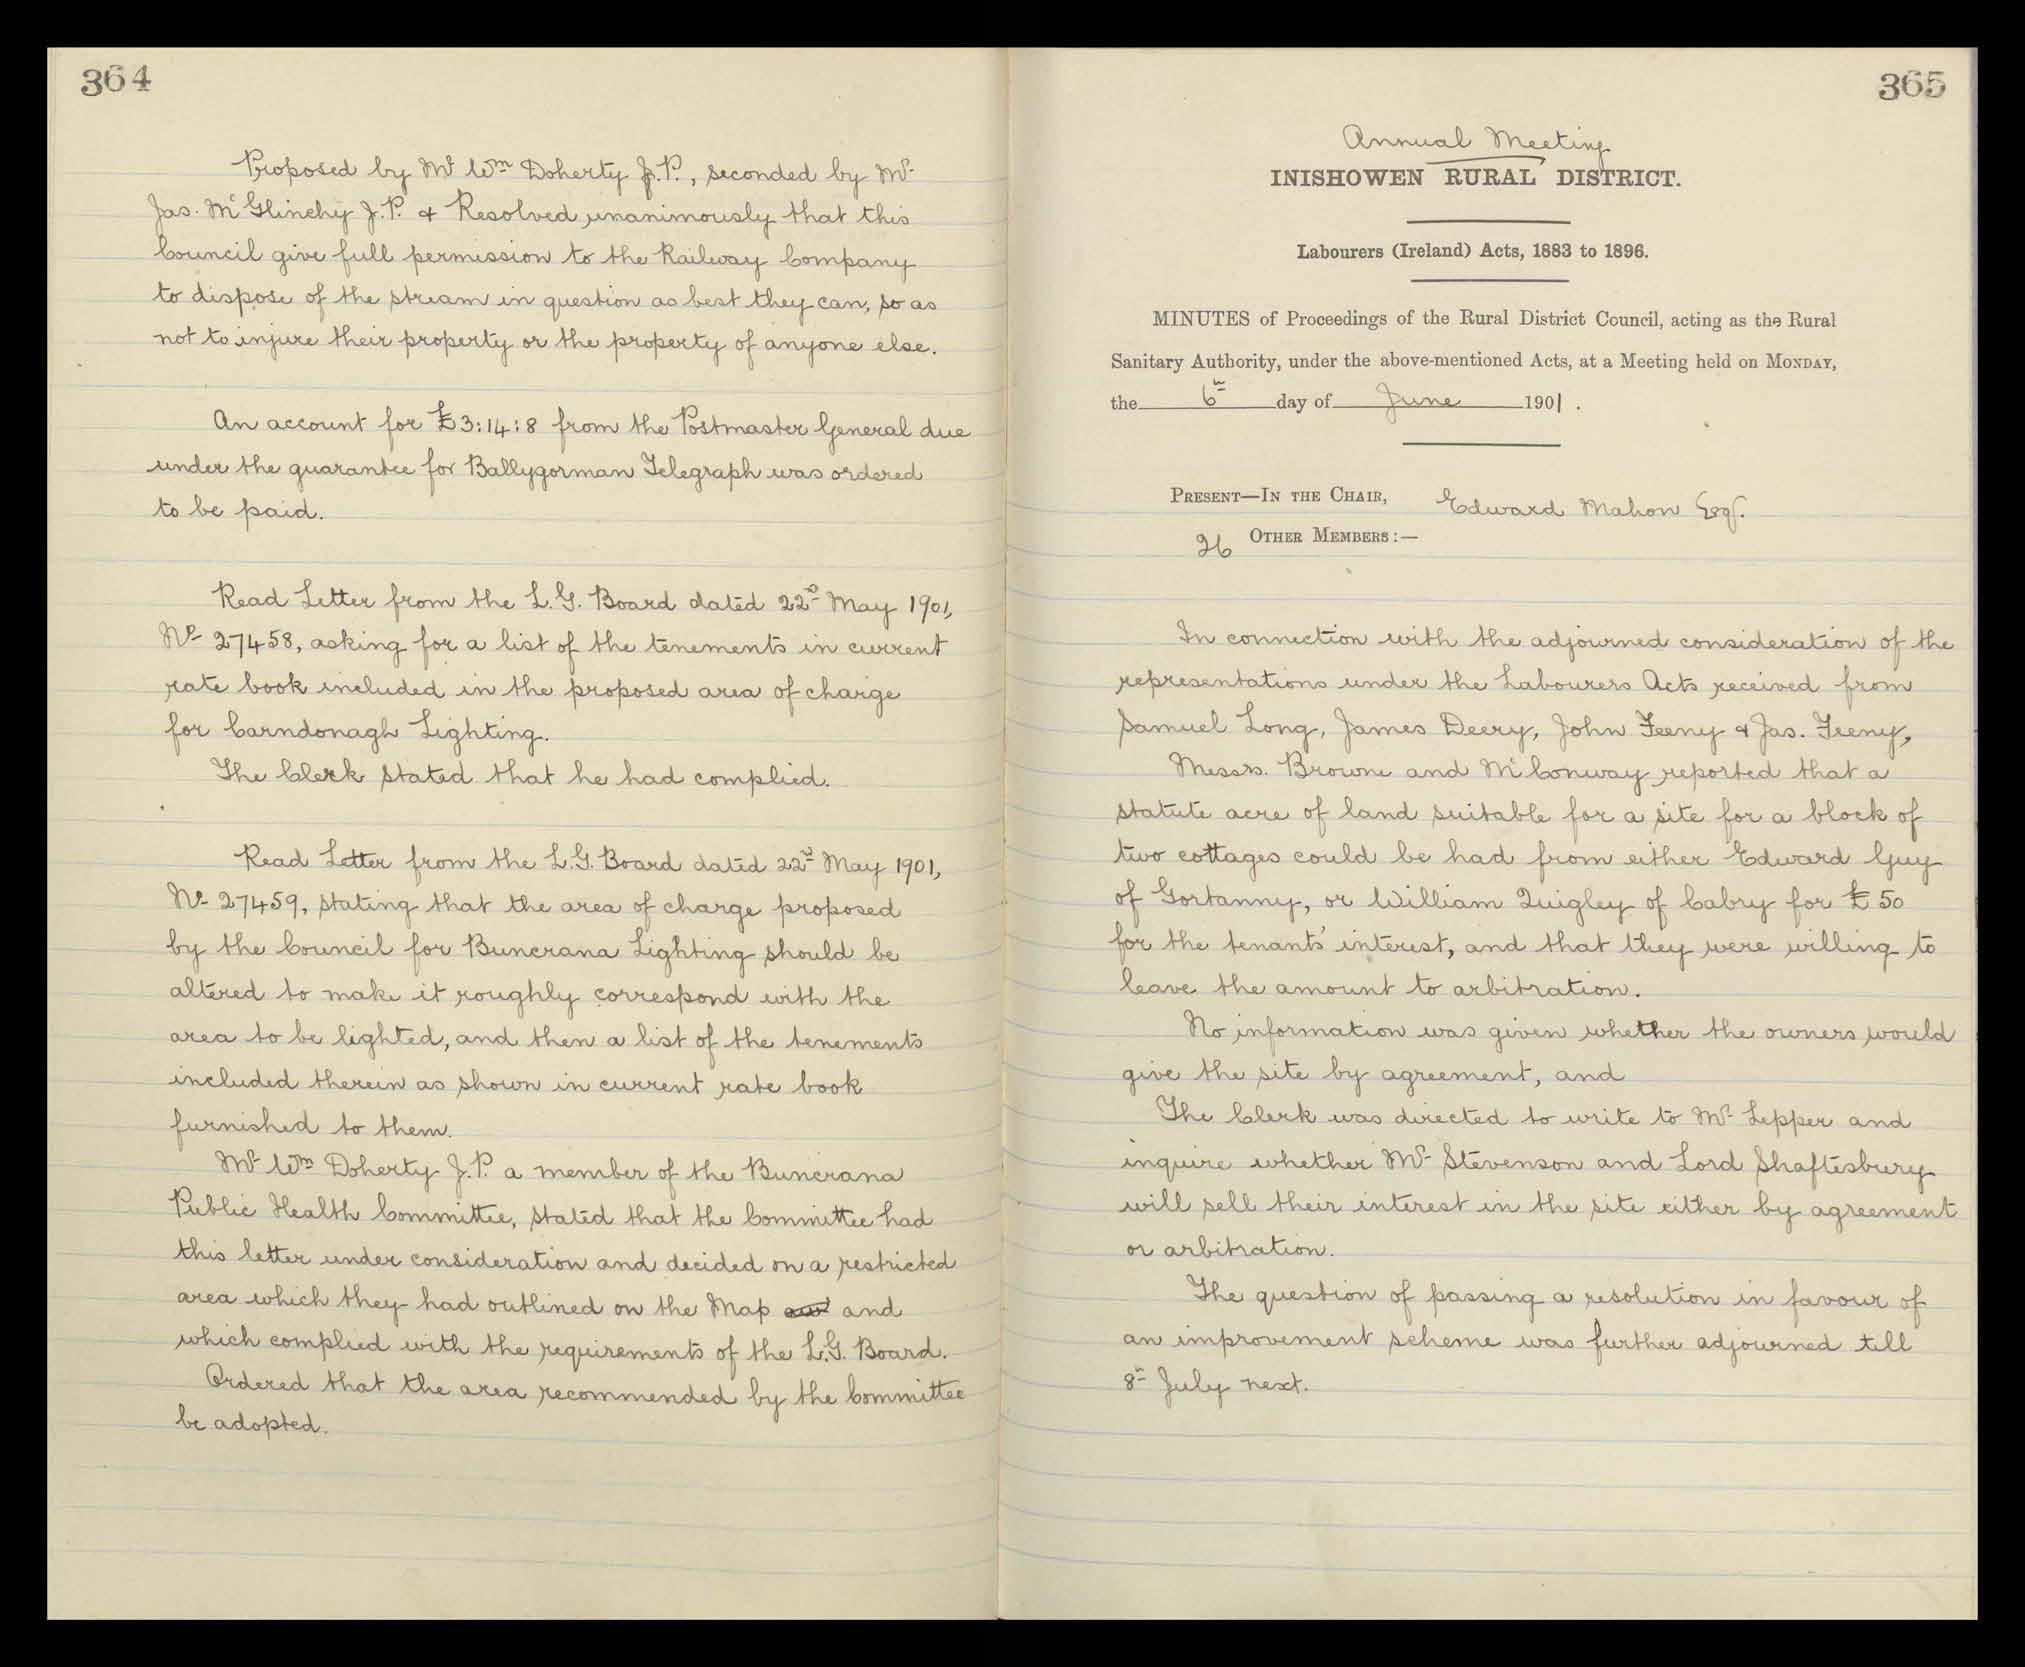 364
Proposed by Mr Wm Doherty J.P., seconded by Mr
Jas. McGlinchy J.P. & Resolved unanimously that this
Council give full permission to the Railway Company
to dispose of the stream in question as best they can, so as
not to injure their property or the property of anyone else.
An account for £3:14:8 from the Postmaster General due
under the guarantee for Ballygorman Telegraph was ordered
to be paid.
Read Letter from the L.G. Board dated 22nd May 1901,
No 27458, asking for a list of the tenements in current
rate book included in the proposed area of charge
for Carndonagh Lighting.
The Clerk stated that he had complied.
Read Letter from the L.G. Board dated 22nd May 1901,
No 27459, stating that the area of charge proposed
by the Council for Buncrana Lighting should be
altered to make it roughly correspond with the
area to be lighted, and then a list of the tenements
included therein as shown in current rate book
furnished to them.
Mr Wm Doherty J.P. a member of the Buncrana
Public Health Committee, stated that the Committee had
this letter under consideration and decided on a restricted
area which they had outlined on the Map and
which complied with the requirements of the L.G. Board.
Ordered that the area recommended by the Committee
be adopted.
365
Annual Meeting
INISHOWEN RURAL DISTRICT.
Labourers (Ireland) Acts, 1883 to 1896.
MINUTES of Proceedings of the Rural District Council, acting as the Rural
Sanitary Authority, under the above-mentioned Acts, at a Meeting held on MONDAY,
the 6th day of June 1901.
PRESENT—IN THE CHAIR, Edward Mahon Esqr.
26 OTHER MEMBERS:—
In connection with the adjourned consideration of the
representations under the Labourers Acts received from
Samuel Long, James Deery, John Feeny & Jas. Feeny,
Messrs. Browne and McConway reported that a
statute acre of land suitable for a site for a block of
two cottages could be had from either Edward Guy
of Gortanny, or William Quigley of Cabry for £50
for the tenants' interest, and that they were willing to
leave the amount to arbitration.
No information was given whether the owners would
give the site by agreement, and
The Clerk was directed to write to Mr Lepper and
inquire whether Mr Stevenson and Lord Shaftesbury
will sell their interest in the site either by agreement
or arbitration.
The question of passing a resolution in favour of
an improvement scheme was further adjourned till
8th July next.